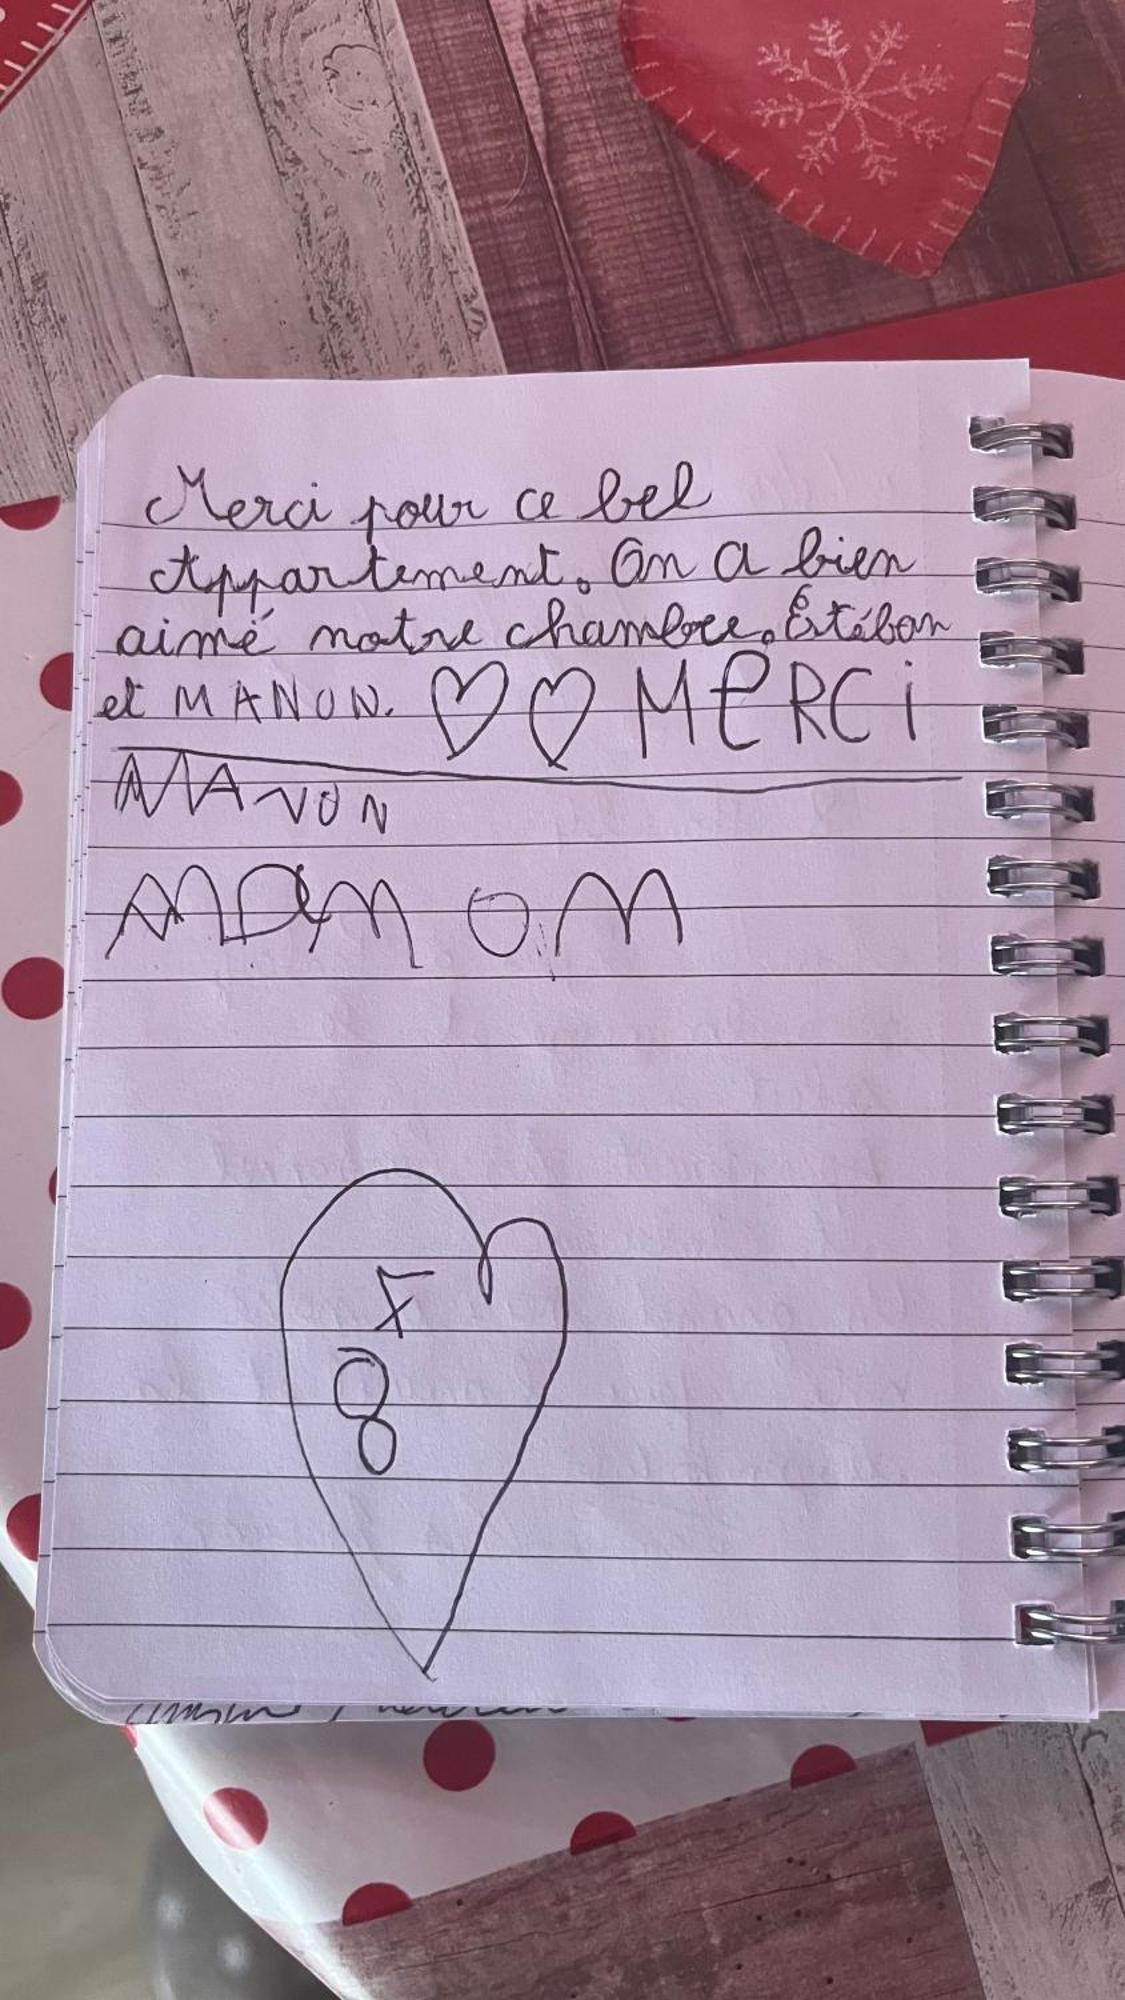 Merci pour ce bel
Appartement. On a bien
aimé notre chambre. Estéban
et MANON. ♡♡ MeRCi
MANON